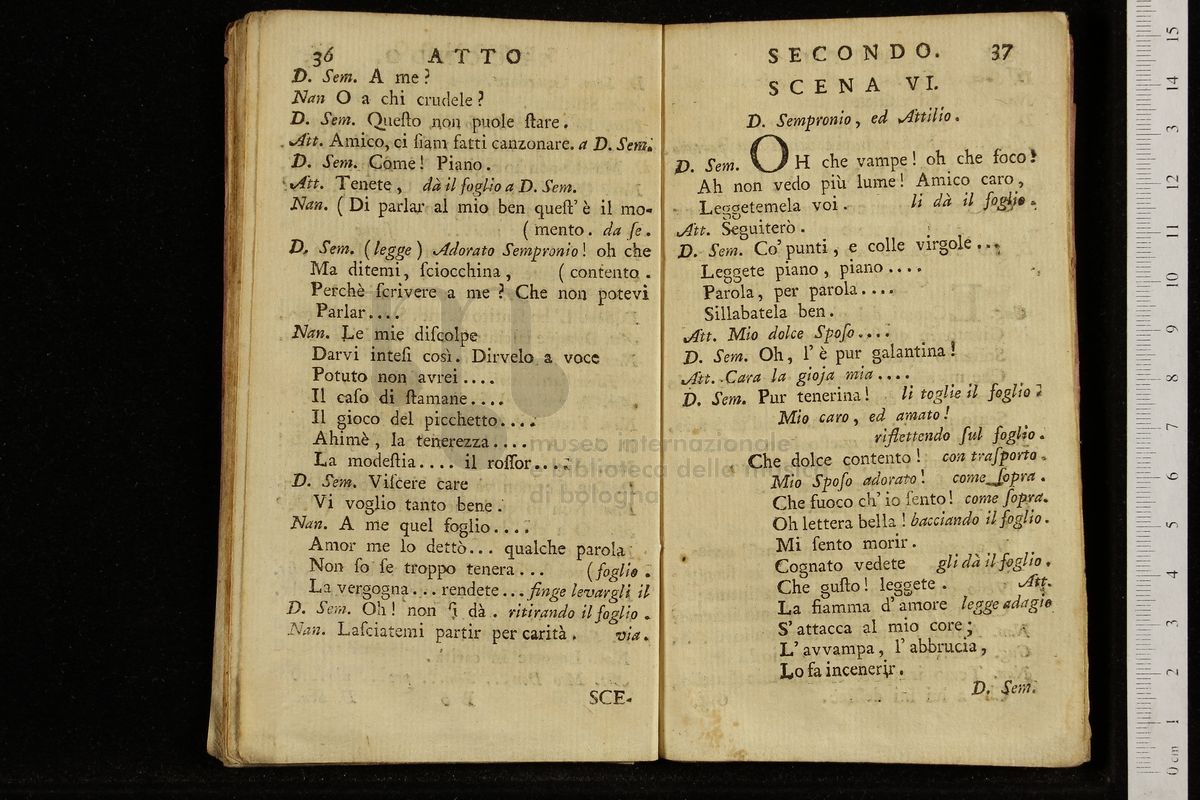 36 ATTO
D. Sem. A me?
Nan O a chi crudele?
D. Sem. Queſto non puole ſtare.
Att. Amico, ci ſiam fatti canzonare. a D. Sem.
D. Sem. Come! Piano.
Att. Tenete, dà il foglio a D. Sem.
Nan. (Di parlar al mio ben queſt' è il mo-
(mento. da ſe.
D. Sem. (legge) Adorato Sempronio! oh che
Ma ditemi, ſciocchina, (contento.
Perchè ſcrivere a me? Che non potevi
Parlar....
Nan. Le mie diſcolpe
Darvi inteſi così. Dirvelo a voce
Potuto non avrei....
Il caſo di ſtamane....
Il gioco del picchetto....
Ahimè, la tenerezza....
La modeſtia.... il roſſor....
D. Sem. Viſcere care
Vi voglio tanto bene.
Nan. A me quel foglio....
Amor me lo dettò... qualche parola
Non ſo ſe troppo tenera... (foglio.
La vergogna... rendete... finge levargli il
D. Sem. Oh! non ſi dà. ritirando il foglio.
Nan. Laſciatemi partir per carità. via.
SCE-
SECONDO. 37
SCENA VI.
D. Sempronio, ed Attilio.
D. Sem. OH che vampe! oh che foco!
Ah non vedo più lume! Amico caro,
Leggetemela voi. li dà il foglio.
Att. Seguiterò.
D. Sem. Co' punti, e colle virgole...
Leggete piano, piano....
Parola, per parola....
Sillabatela ben.
Att. Mio dolce Spoſo....
D. Sem. Oh, l' è pur galantina!
Att. Cara la gioja mia....
D. Sem. Pur tenerina! li toglie il foglio.
Mio caro, ed amato!
riflettendo ſul foglio.
Che dolce contento! con traſporto.
Mio Spoſo adorato! come ſopra.
Che fuoco ch' io ſento! come ſopra.
Oh lettera bella! bacciando il foglio.
Mi ſento morir.
Cognato vedete gli dà il foglio.
Che guſto! leggete. Att.
La fiamma d' amore legge adagio
S' attacca al mio core;
L' avvampa, l' abbrucia,
Lo fa incenerir.
D. Sem.
museo internazionale
e biblioteca della musica
di bologna
15
14
13
12
11
10
9
8
7
6
5
4
3
2
1
0 cm